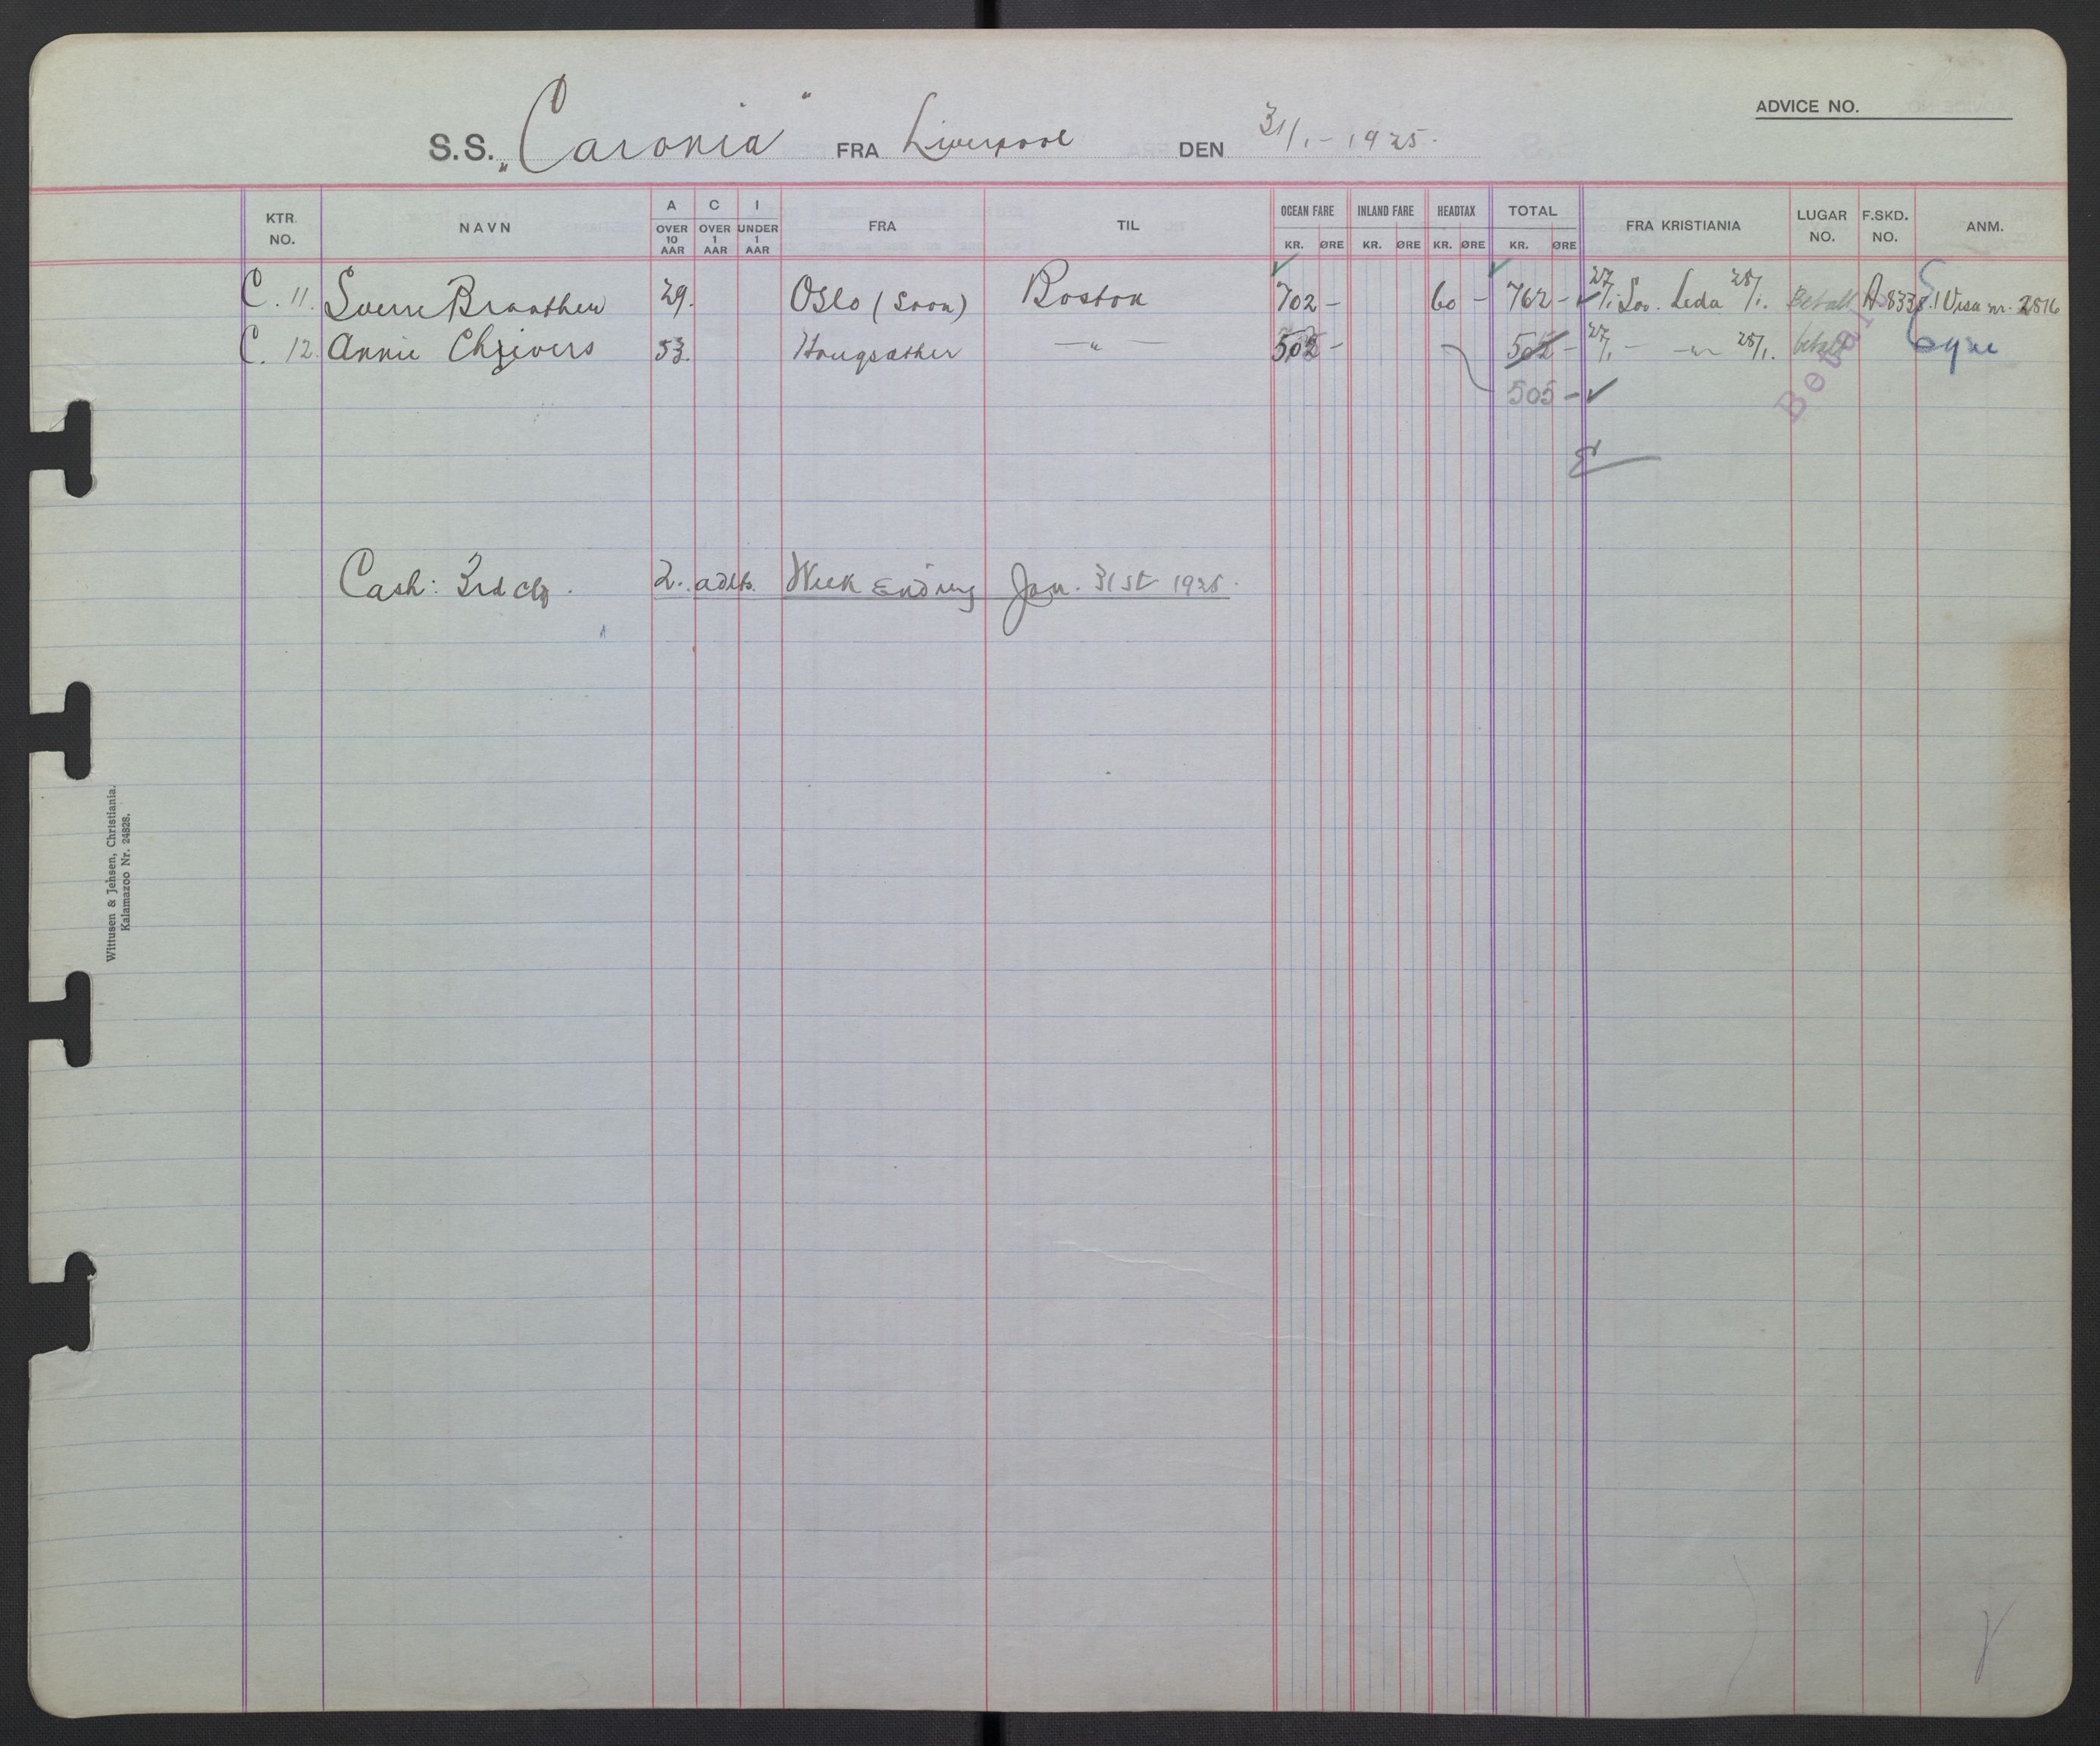 ADVICE NO.
S.S. „Caronia" FRA Liverpool DEN 31/1-1925.
KTR. NO. NAVN A OVER 10 AAR C OVER 1 AAR I UNDER 1 AAR FRA TIL OCEAN FARE KR. ØRE INLAND FARE KR. ØRE HEADTAX KR. ØRE TOTAL KR. ØRE FRA KRISTIANIA LUGAR NO. F.SKD. NO. ANM.
C. 11. Sverre Braathen 29. Oslo (Soon) Boston 702 - 60 - 762 - 27/1 Leda 28/1. Betalt A 8338. Visa nr. 2816
C. 12. Annie Chrivers 53. Hougsather - " - 502 - 502 - 27/1 - - " - 28/1. betalt
505 -
Betalt
Cash: 3rd cls. 2. adlts. Week Ending Jan. 31st 1925.
Wittusen & Jensen, Christiania.
Kalamazoo Nr. 24828.